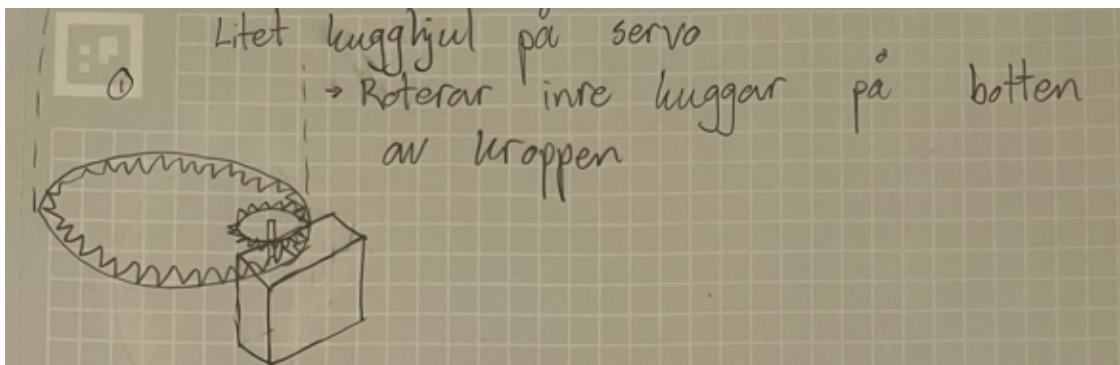 Litet kugghjul på servo
① → Roterar inre kuggar på botten
av kroppen